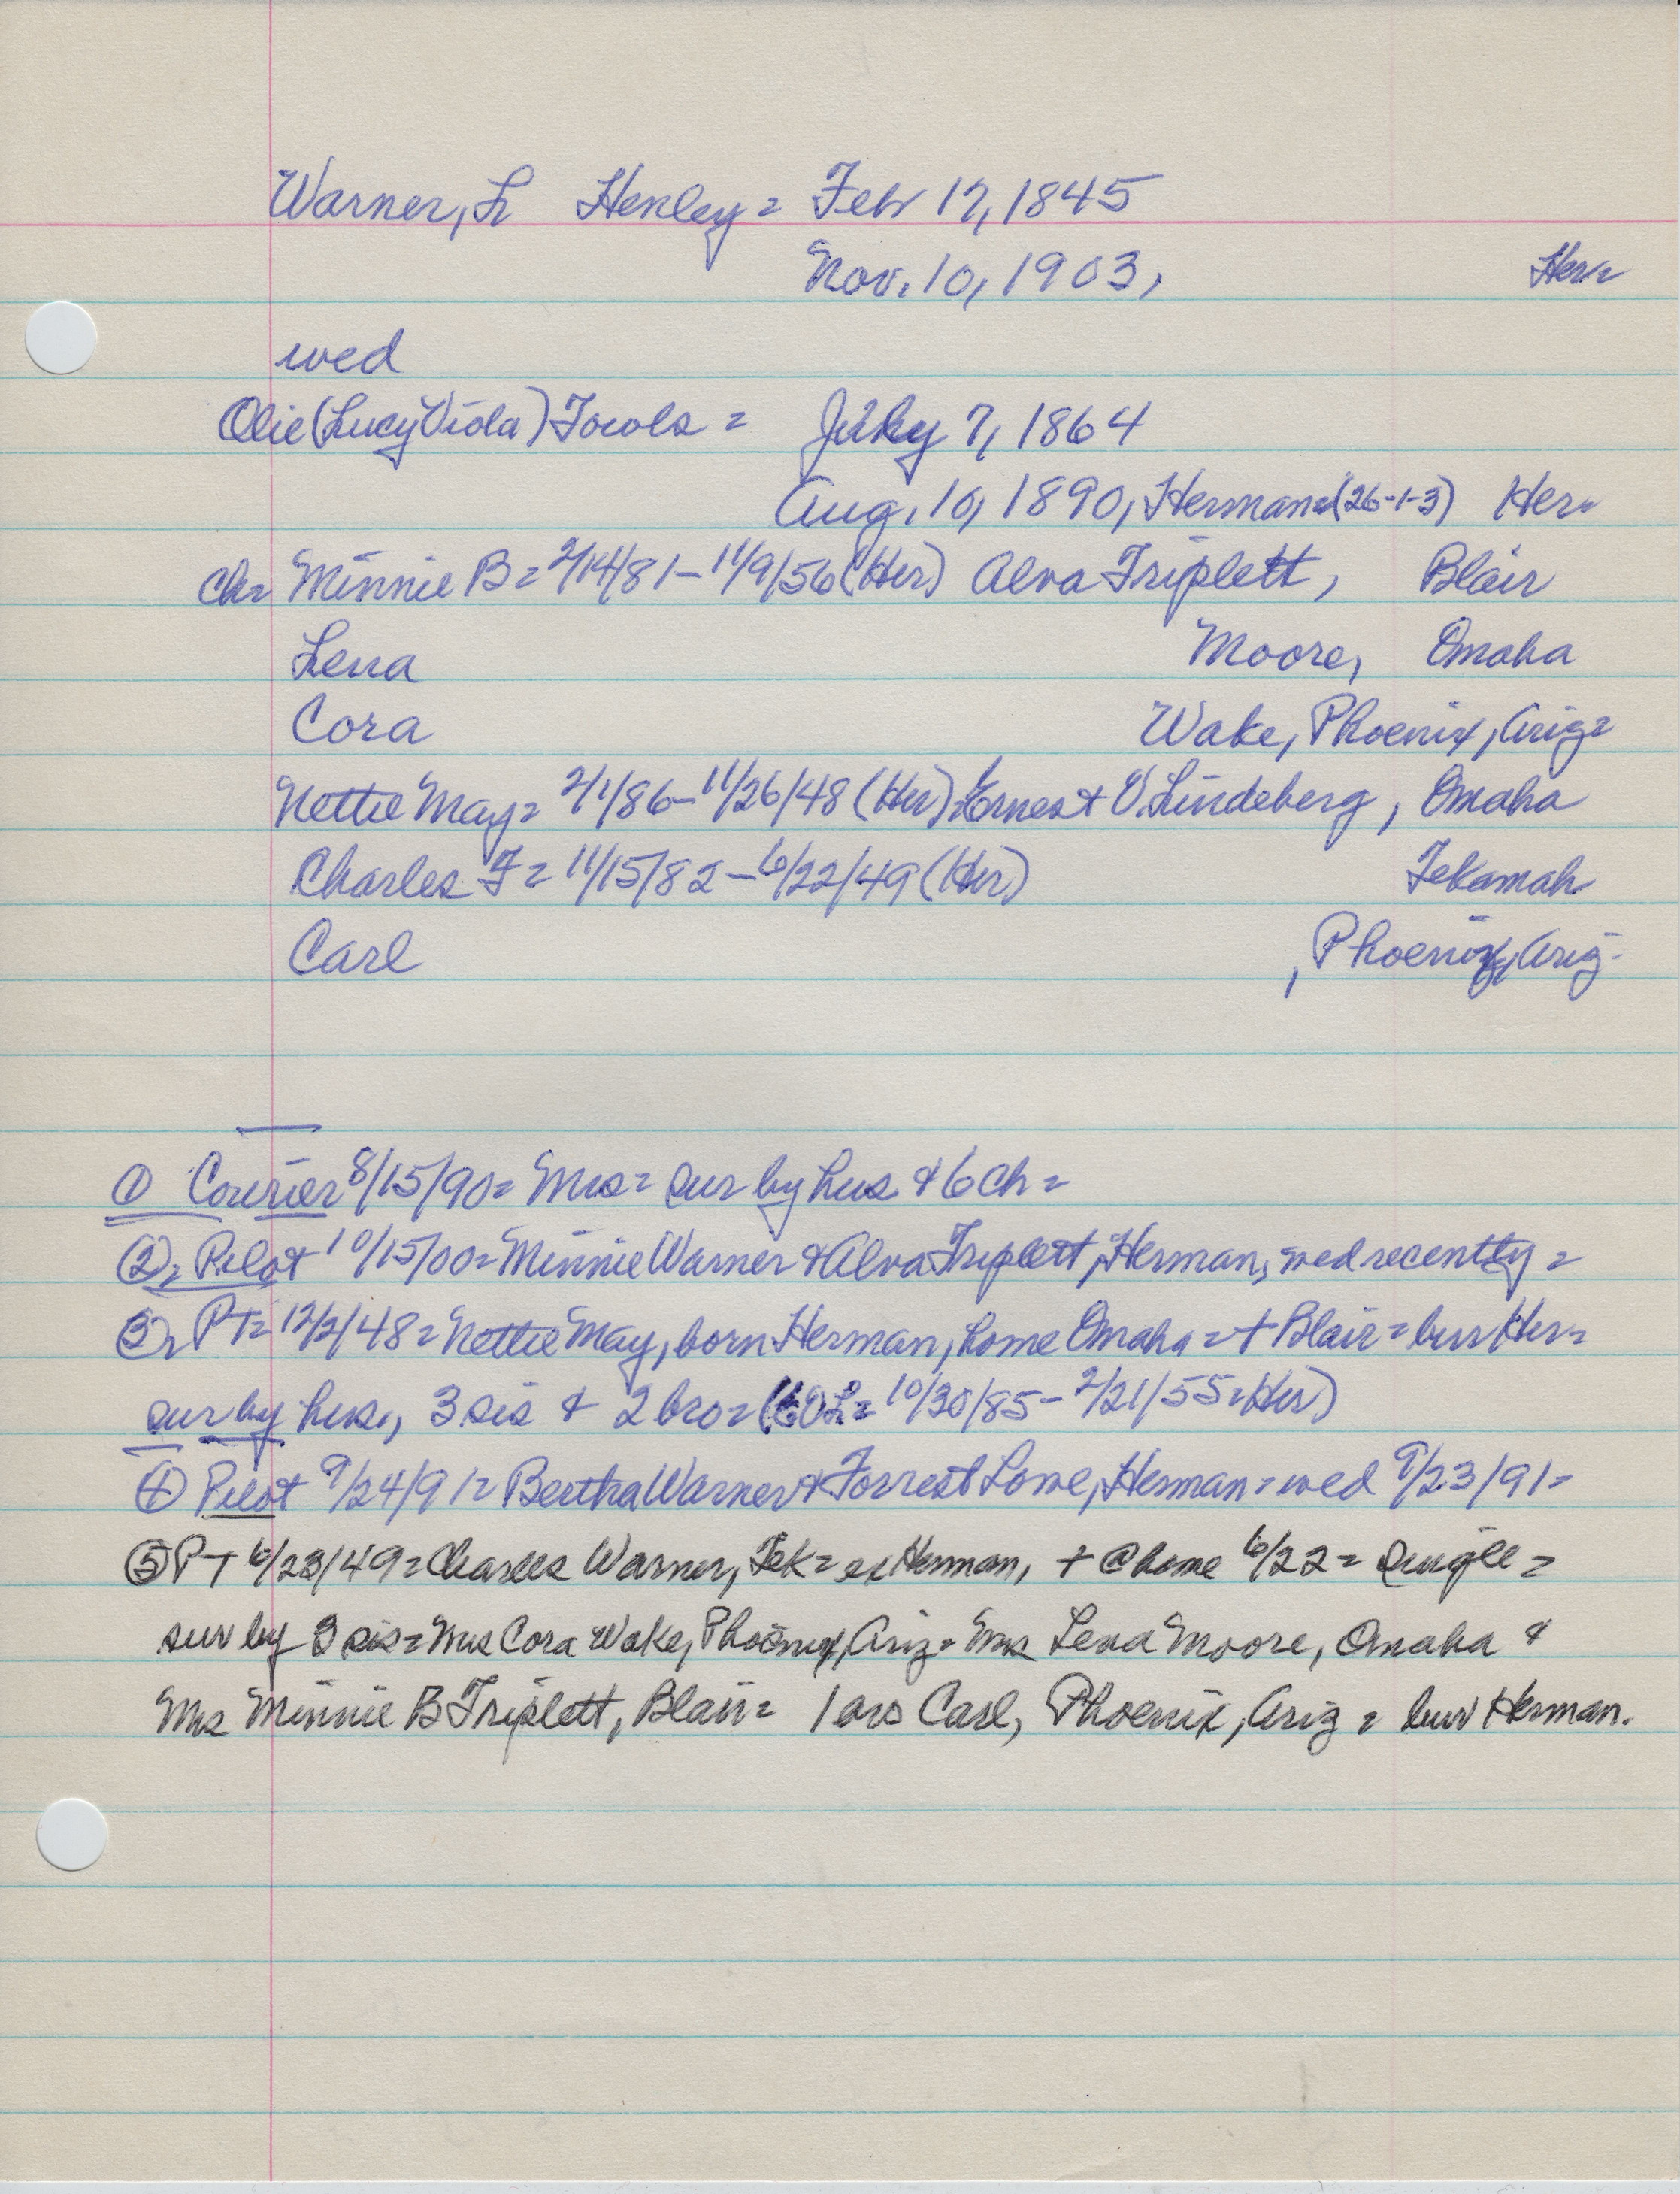 Warner, L Henley = Feb 17, 1845
Nov. 10, 1903, Her=
wed
Olie (Lucy Viola) Fowls = July 7, 1864
Aug. 10, 1890, Herman = (26-1-3) Her=
ch= Minnie B = 2/14/81 - 11/9/56 (Her) Alva Triplett, Blair
Lena Moore, Omaha
Cora Wake, Phoenix, Ariz=
Nettie May = 2/1/86 - 11/26/48 (Her) Ernest O. Lindeberg, Omaha
Charles F = 11/15/82 - 6/22/49 (Her) Tekamah
Carl , Phoenix, Ariz-
① Courier 8/15/90 = Mrs = sur by hus & 6 ch =
②= Pilot 10/15/00 = Minnie Warner & Alva Triplett, Herman, wed recently =
③= PT= 12/2/48 = Nettie May, born Herman, home Omaha = + Blair = bur Her=
sur by hus., 3 sis & 2 bro = (EOL = 10/30/85 - 2/21/55 = Her)
④ Pilot 9/24/91 = Bertha Warner & Forrest Lowe, Herman = wed 9/23/91=
⑤ PT 6/23/49 = Charles Warner, Tek = ex Herman, + @ home 6/22 = Single =
sur by 3 sis = Mrs Cora Wake, Phoenix, Ariz = Mrs Lena Moore, Omaha &
Mrs Minnie B Triplett, Blair = 1 bro Carl, Phoenix, Ariz = bur Herman.